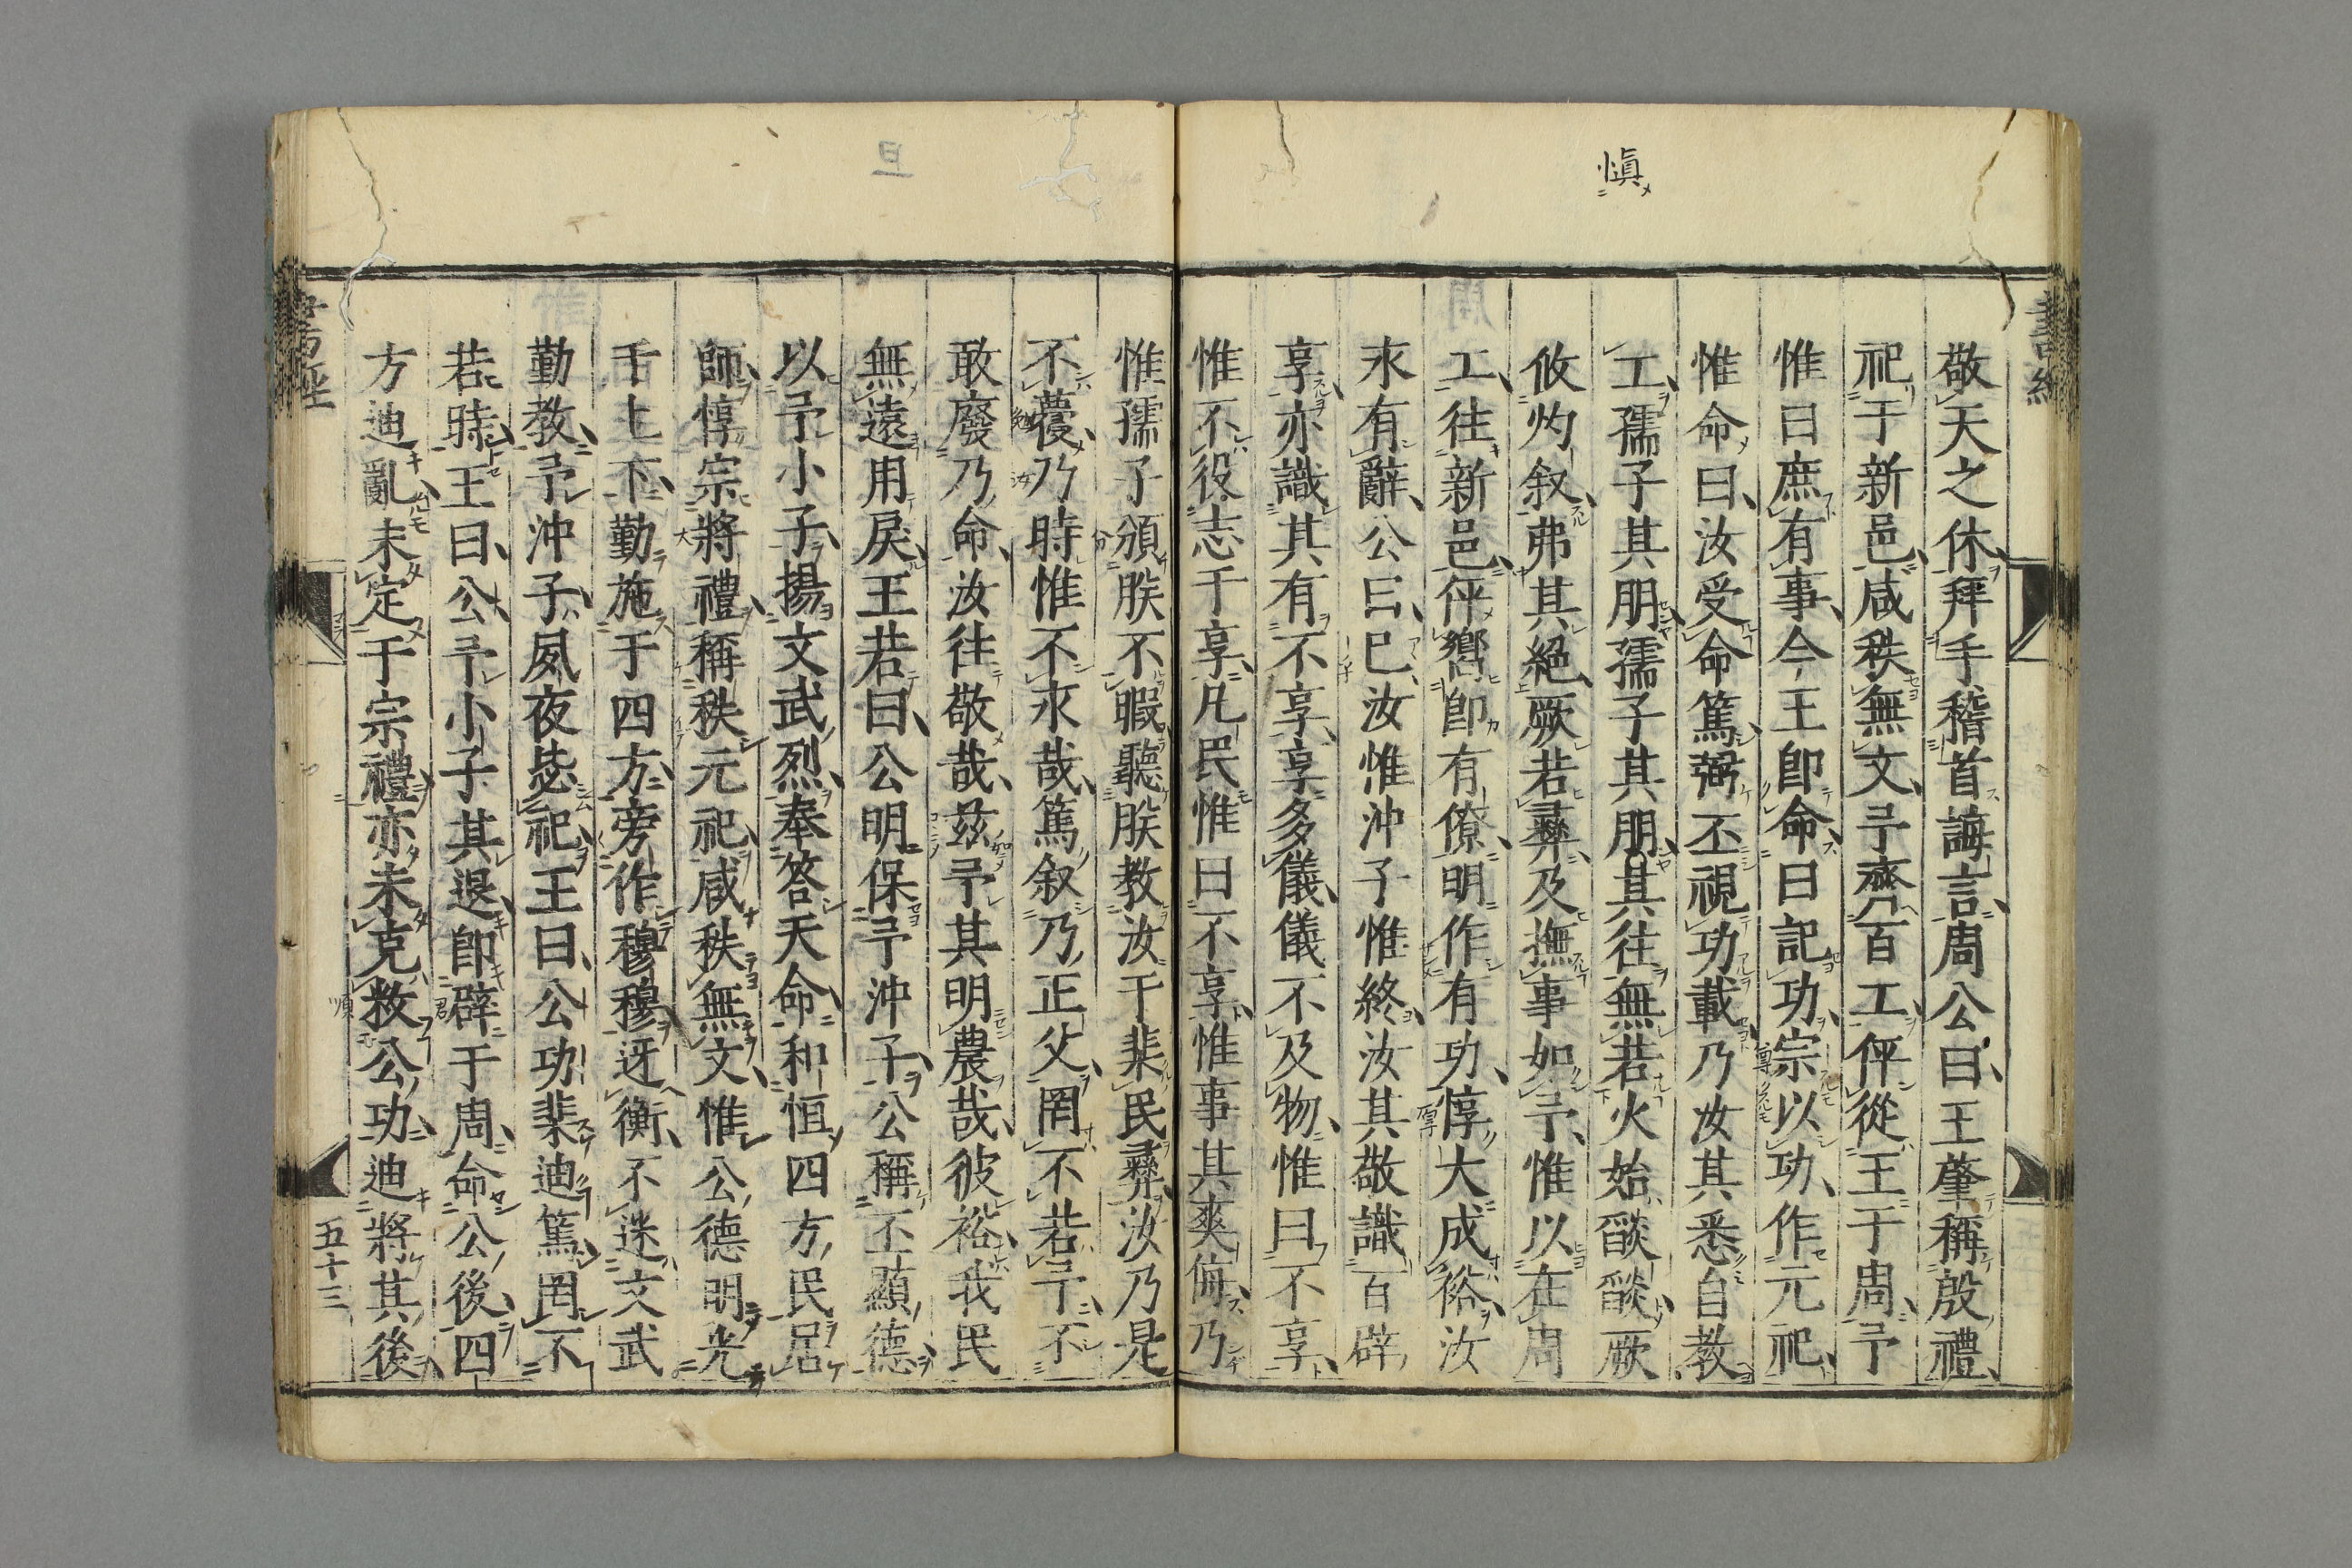 愼
書經
敬天之休拜手稽首誨言周公曰王肇稱殷禮
祀于新邑咸秩無文予齊百工伻從王于周予
惟曰庶有事今王卽命曰記功宗以功作元祀
惟命曰汝受命篤弼丕視功載乃汝其悉自教
工孺子其朋孺子其朋其往無若火始燄燄厥
攸灼叙弗其絕厥若彞及撫事如予惟以在周
工往新邑伻嚮卽有僚明作有功惇大成裕汝
永有辭公曰已汝惟沖子惟終汝其敬識百辟
享亦識其有不享享多儀儀不及物惟曰不享
惟不役志于享凡民惟曰不享惟事其爽侮乃
惟孺子頒朕不暇聽朕教汝于棐民彞汝乃是
不蘉乃時惟不永哉篤叙乃正父罔不若予不
敢廢乃命汝往敬哉茲予其明農哉彼裕我民
無遠用戾王若曰公明保予沖子公稱丕顯德
以予小子揚文武烈奉答天命和恒四方民居
師惇宗將禮稱秩元祀咸秩無文惟公德明光
于上下勤施于四方旁作穆穆迓衡不迷文武
勤教予沖子夙夜毖祀王曰公功棐迪篤罔不
若時王曰公予小子其退卽辟于周命公後四
方迪亂未定于宗禮亦未克敉公功迪將其後
書經
五十三